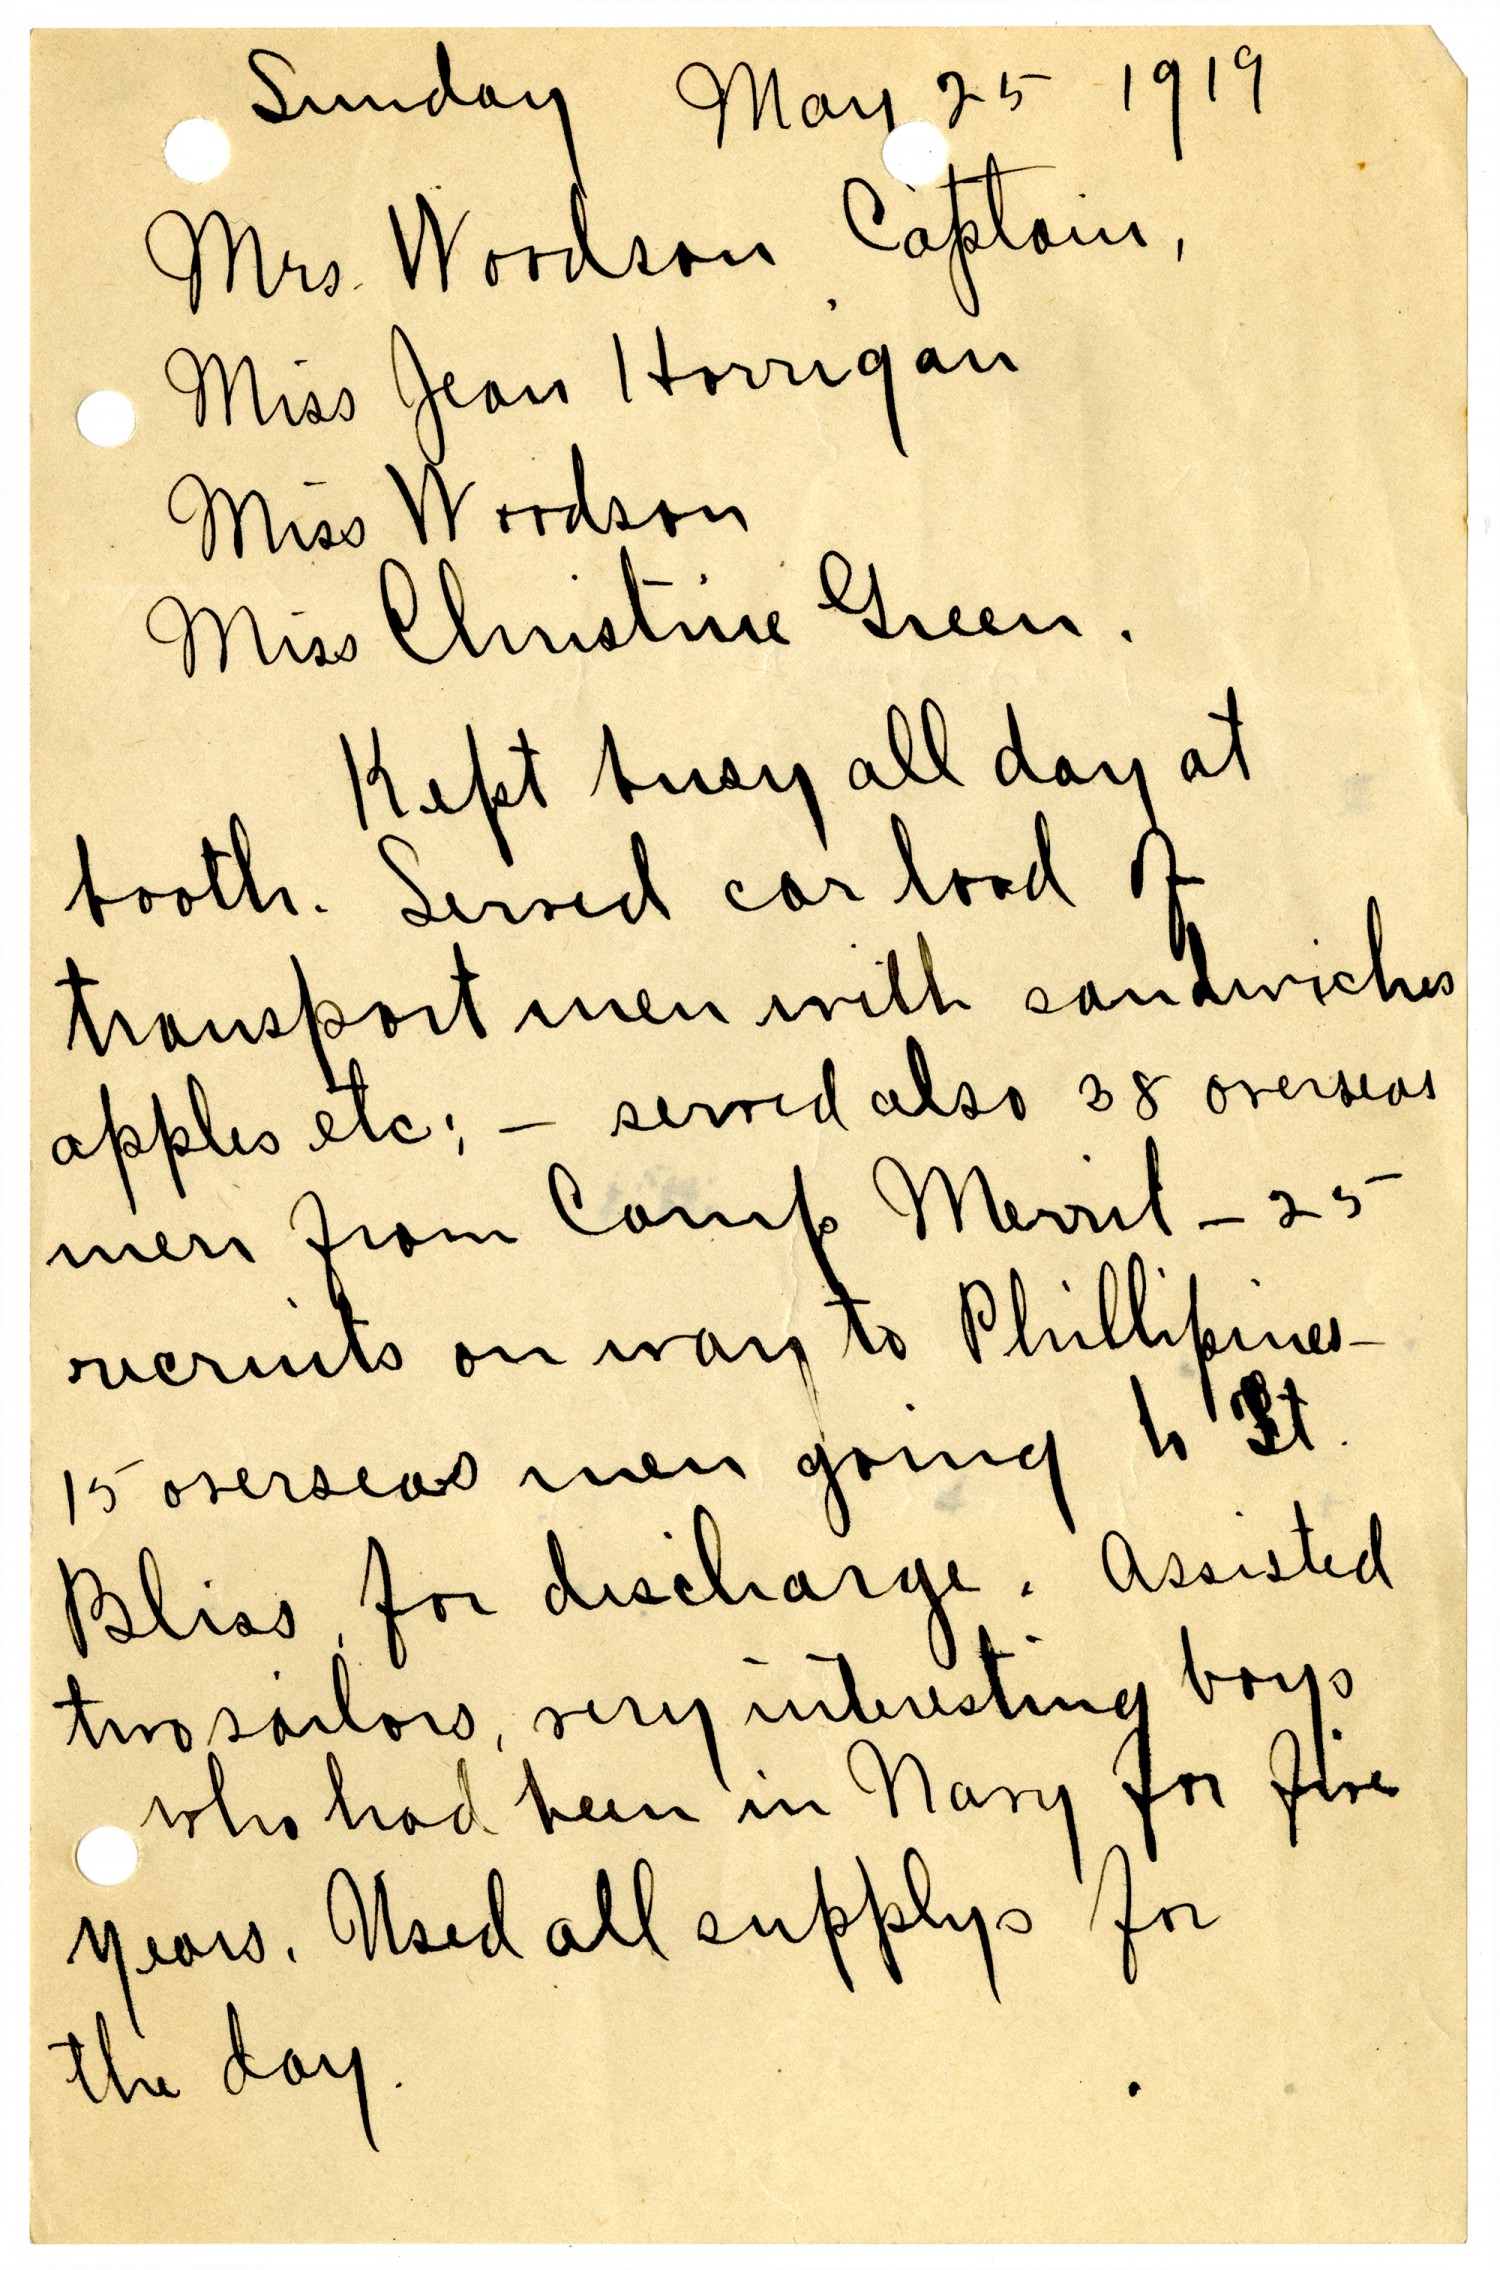 Sunday May 25 1919
Mrs. Woodson Captain,
Miss Jean Horrigan
Miss Woodson
Miss Christine Green.
Kept busy all day at
booth. Served car load of
transport men with sandwiches
apples etc; - served also 38 overseas
men from Camp Merril - 25
recruits on way to Phillipines -
15 overseas men going to Ft.
Bliss, for discharge. Assisted
two sailors, very interesting boys
who had been in Navy for five
years. Used all supplys for
the day.